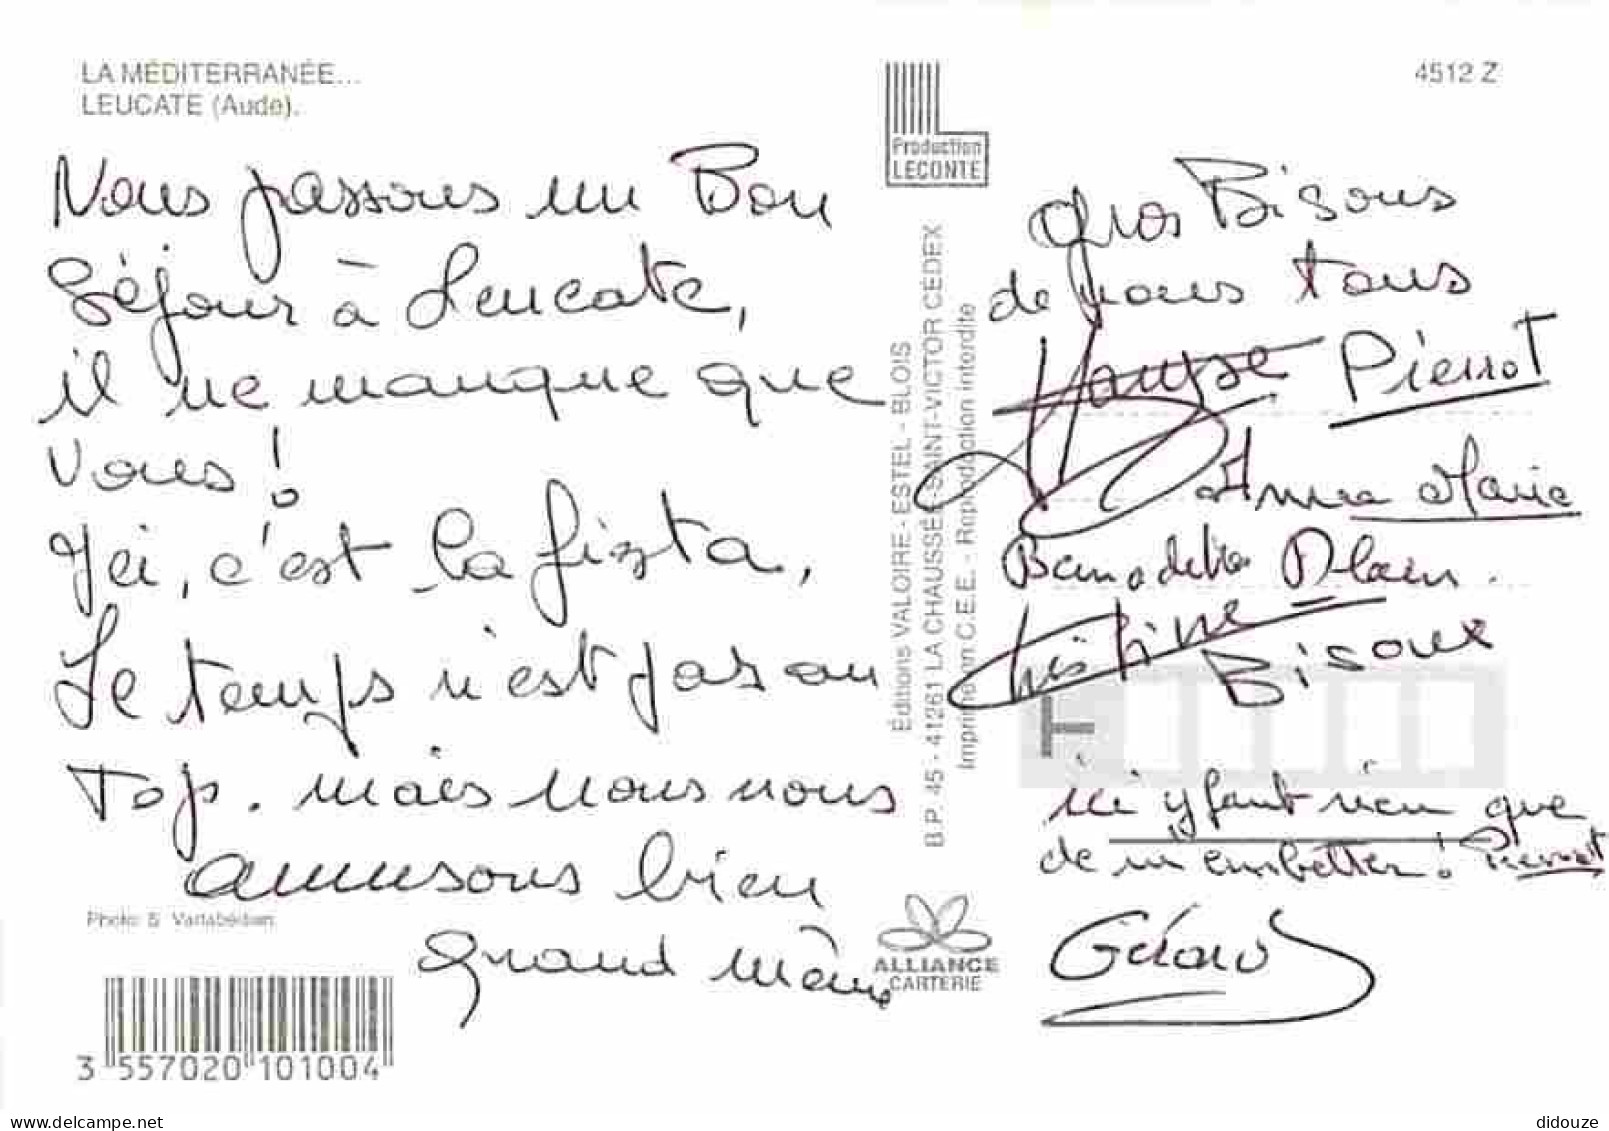 LA MÉDITERRANÉE...
LEUCATE (Aude).
Nous passons un Bon
Séjour à Leucate,
il ne manque que
vous !
Ici, c'est la fiesta,
Le temps n'est pas au
Top. mais nous nous
amusons bien
Grand Mère
Photo S. Vartabédian
3 557020 101004
Production
LECONTE
Éditions VALOIRE - ESTEL - BLOIS
B.P. 45 - 41261 LA CHAUSSÉE-SAINT-VICTOR CÉDEX
Imprimé en C.E.E. - Reproduction interdite
ALLIANCE
CARTERIE
4512 Z
Gros Bisous
de nous tous
Pierrot
Anne Marie
Bernadette Alain.
Christine
Bisoux
ici y faut rien que
de m'embetter ! Pierrot
Gérard
delcampe.net
didouze